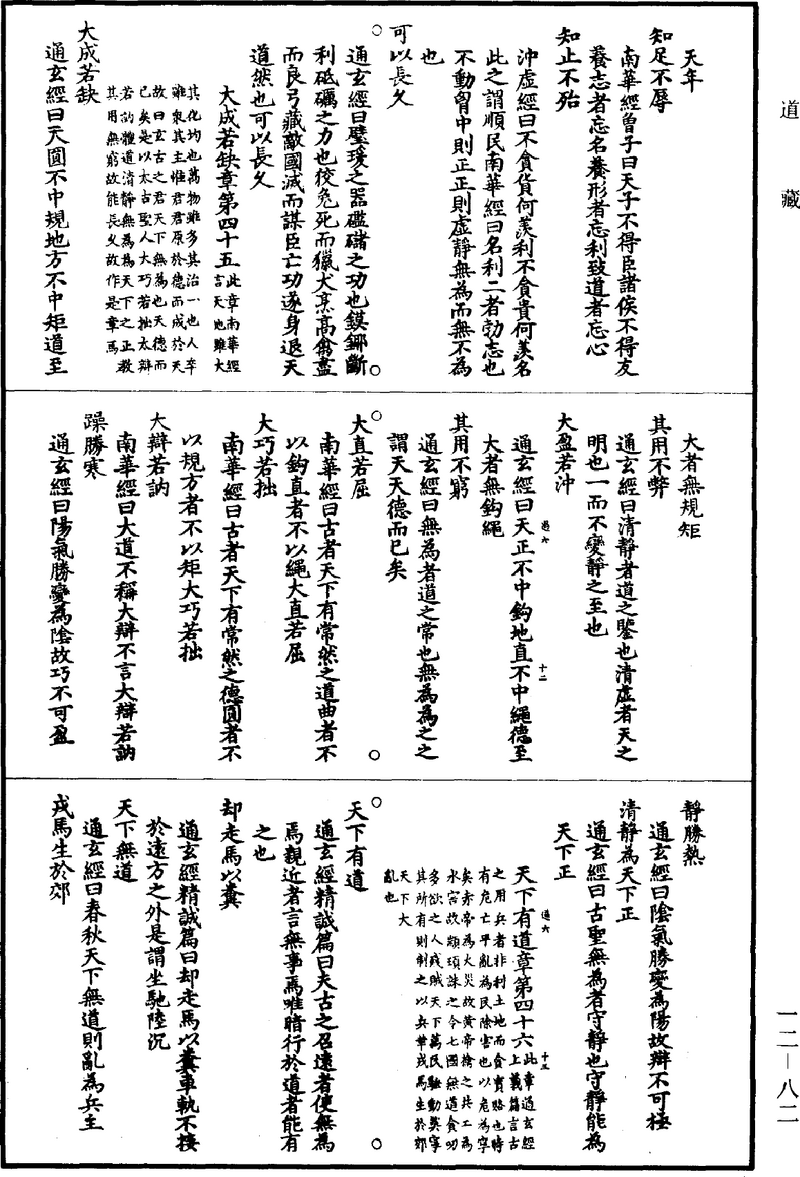 道藏
天年
知足不辱
南華經曾子曰天子不得臣諸侯不得友
養志者忘名養形者忘利致道者忘心
知止不殆
沖虛經曰不貪貨何羨利不貪貴何羨名
此之謂順民南華經曰名利二者勃志也
不動胷中則正正則虛靜無為而無不為
也
可以長久
通玄經曰璧瑗之器礛䃴之功也鏌鋣斷
利砥礪之力也狡兔死而獵犬烹高禽盡
而良弓藏敵國滅而謀臣亡功遂身退天
道然也可以長久
大成若缺章第四十五
此章南華經
言天地雖大
其化均也萬物雖多其治一也人卒
雖衆其主惟君君原於德而成於天
故曰玄古之君天下無為也天德而
已矣是以太古聖人大巧若拙大辯
若訥體道清靜無為為天下之正教
其用無窮故能長久故作是章焉
大成若缺
通玄經曰天圓不中規地方不中矩道至
大者無規矩
其用不弊
通玄經曰清靜者道之鑒也清虛者天之
明也一而不變靜之至也
大盈若沖
通六 十二
通玄經曰天正不中鈎地直不中繩德至
大者無鈎繩
其用不窮
通玄經曰無為者道之常也無為為之之
謂天天德而已矣
大直若屈
南華經曰古者天下有常然之道曲者不
以鈎直者不以繩大直若屈
大巧若拙
南華經曰古者天下有常然之德圓者不
以規方者不以矩大巧若拙
大辯若訥
南華經曰大道不稱大辯不言大辯若訥
躁勝寒
通玄經曰陽氣勝變為陰故巧不可盈
靜勝熱
通玄經曰陰氣勝變為陽故辯不可極
清靜為天下正
通玄經曰古聖無為者守靜也守靜能為
天下正
通六 十三
天下有道章第四十六
此章通玄經
上義篇言古
之用兵者非利土地而貪寶賂也時
有危亡平亂為民除害也以危為寧
矣赤帝為火災故黃帝擒之共工為
水害故顓頊誅之今七國無道貪叨
多欲之人殘賊天下萬民騷動莫寧
其所有則制之以兵革戎馬生於郊
天下大
亂也
天下有道
通玄經精誠篇曰夫古之召遠者使無為
焉親近者言無事焉唯暗行於道者能有
之也
却走馬以糞
通玄經精誠篇曰却走馬以糞車軌不接
於遠方之外是謂坐馳陸沉
天下無道
通玄經曰春秋天下無道則亂為兵主
戎馬生於郊
一二－八二